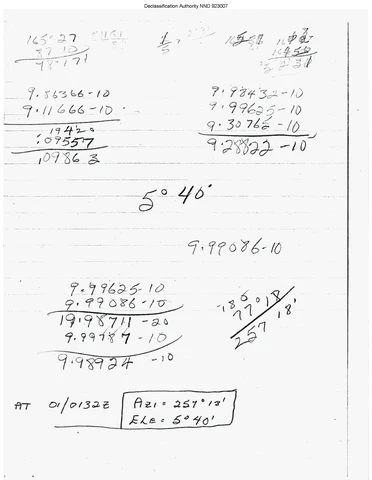 Declassification Authority NND 923007
165° 27
87 10
78° 17'
9.56366-10
9.11666-10
19420
:09557
.09863
9.98432-10
9.99625-10
9.30765-10
9.28822-10
5° 40'
9.99086-10
9.99625-10
9.99086-10
19.98711-20
9.99787-10
9.98924 -10
180
77° 18
257 18'
AT 01/0132Z
AZI = 257° 18'
ELE = 5° 40'